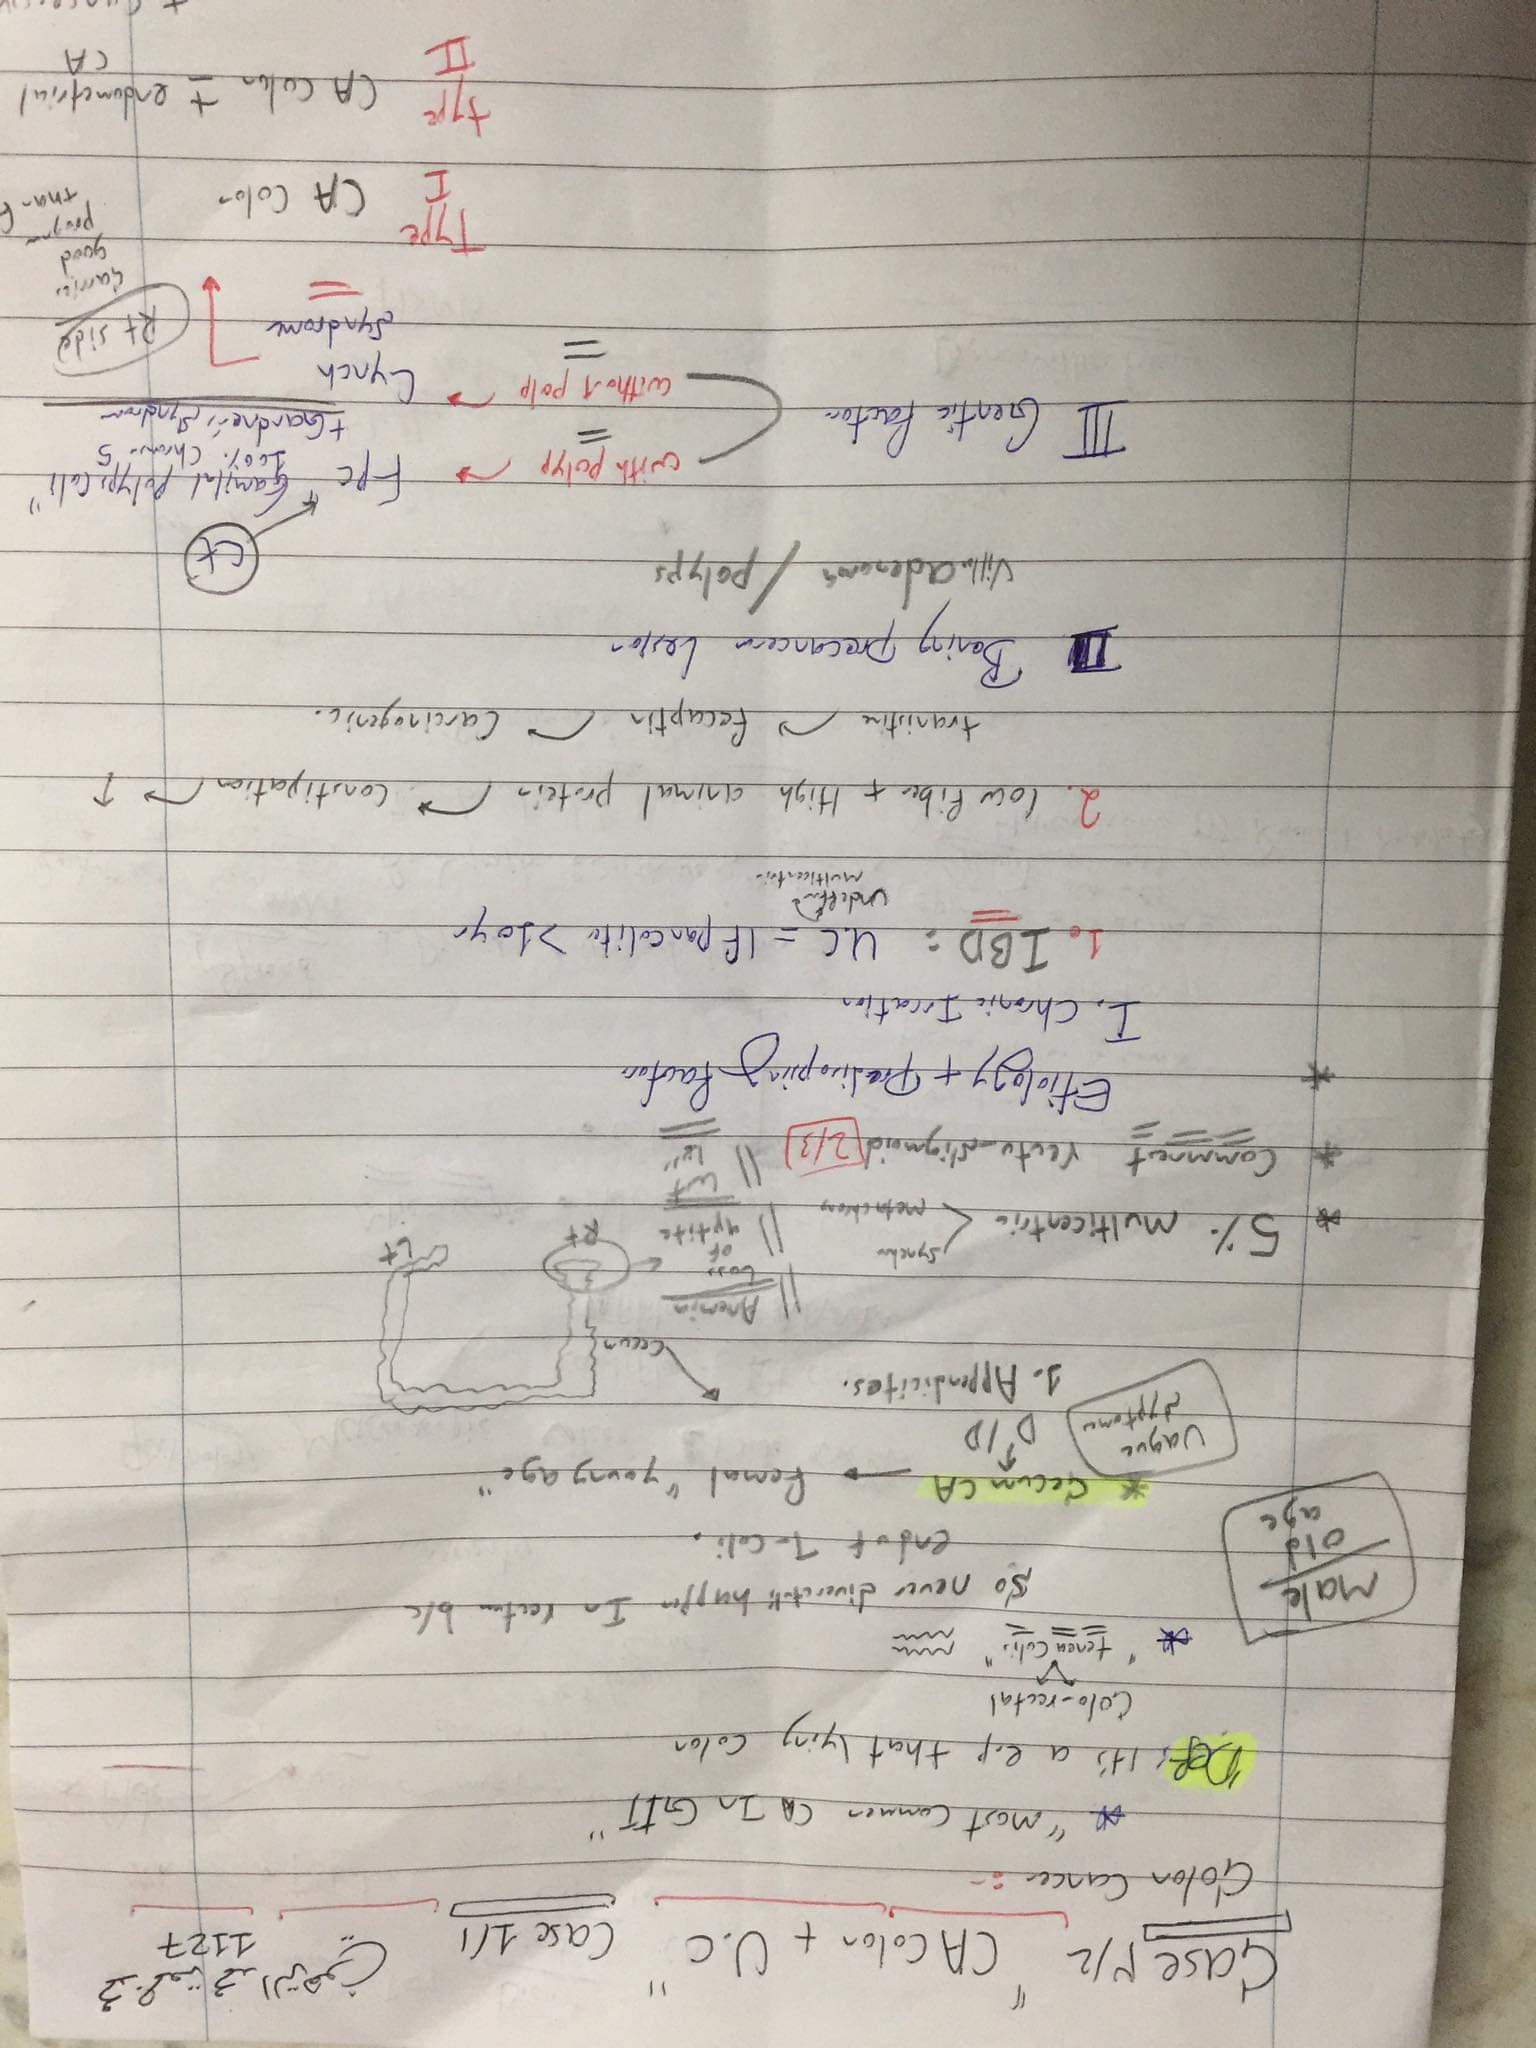 Case "CA Colon + U.C" Case 1/1
1127
Colon Cancer :-
* "most Common CA In GIT"
Def: It's a ep that lying Colon
Colo-rectal
* "tenea Coli"
So never divertcli happen In rectum b/c
end of T-Coli.
male
old
age
* Cecum CA → Femal "young age"
D/D
Vague
Symptoms
1. Appendicites.
Cecum
Anemia
Loss
of
aptite
wt
loss
Rt
Lt
* 5% multicentric
Synchro
Metachrous
* Commnest recto-sigmoid 2/3
* Etiology + Predisoping factor
I. Chronic Irration
1. IBD: U.C = IF pancolitc >10yr
Undeffind
multicentric
2. low fiber + High animal protein → Constipation → ↑
transitine → Fecaptin → Carcinogenic.
II Bening precancern Lesion
Villu adenoma / polyps
Lt
III Gentic factor
with polyp → FPC "Familal polyps Coli"
100% Chrom 5
+ Gardner's Syndrom
without polp → Lynch
Syndrome
Rt side
Carries
good
progn
than
Type
I
CA Colon
type
II
CA Colon ± endometrial
CA